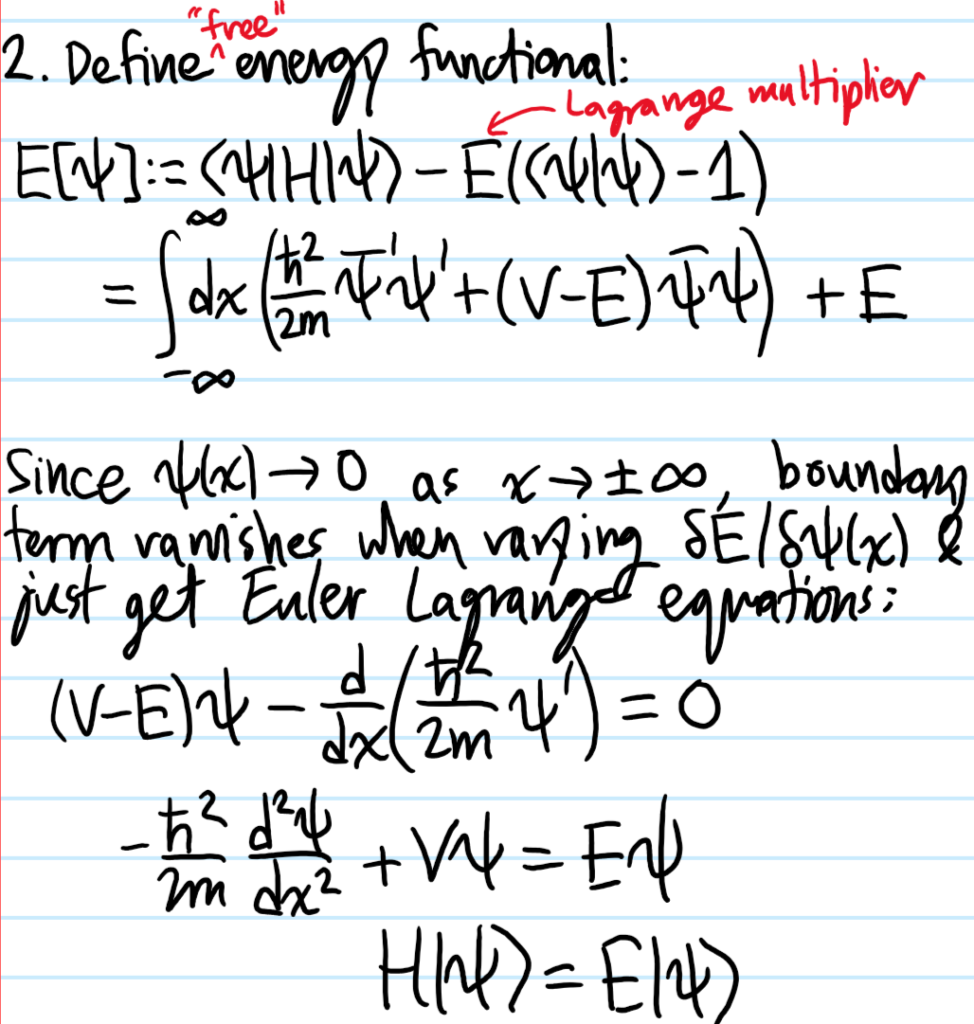 "free"
2. Define ^ energy functional:
← Lagrange multiplier
E[ψ] := ⟨ψ|H|ψ⟩ − E(⟨ψ|ψ⟩ − 1)
= ∫_{-∞}^{∞} dx (ħ²/2m ψ̄'ψ' + (V−E) ψ̄ψ) + E
Since ψ(x) → 0 as x → ±∞, boundary
term vanishes when varying δE/δψ(x) &
just get Euler Lagrange equations:
(V−E)ψ − d/dx(ħ²/2m ψ') = 0
−ħ²/2m d²ψ/dx² + Vψ = Eψ
H|ψ⟩ = E|ψ⟩